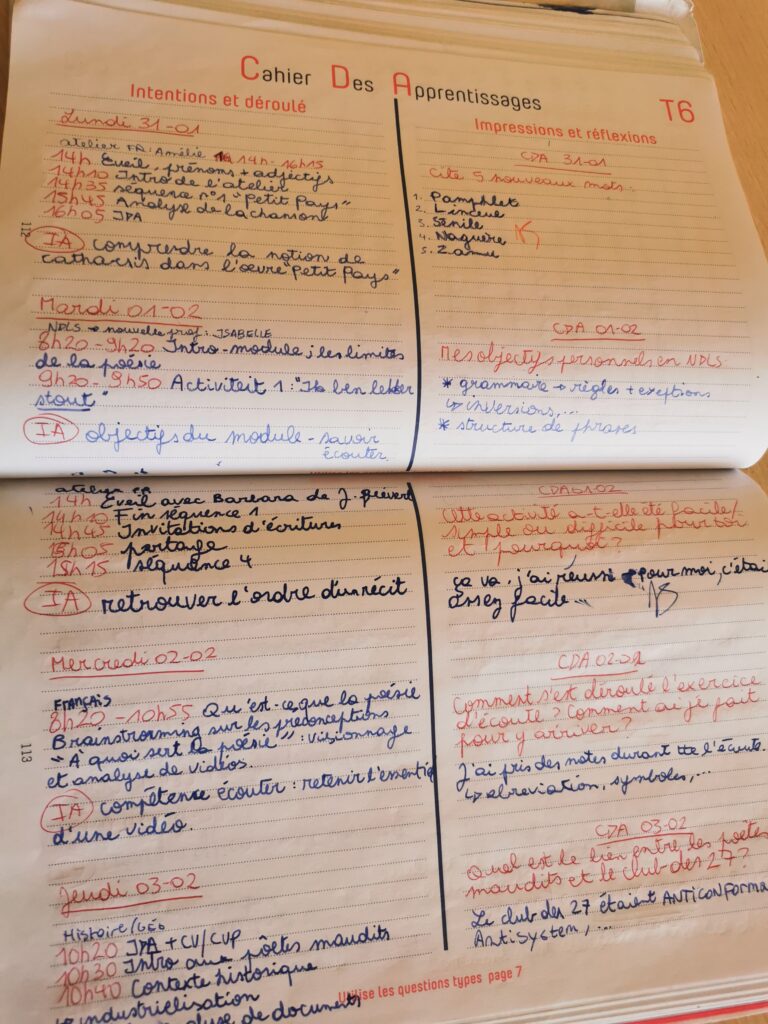 Cahier Des Apprentissages
T6
Intentions et déroulé
Lundi 31-01
atelier FR: Amélie 14h-16h15
14h Eveil, prénoms + adjectifs
14h10 Intro de l'atelier
14h35 séquence n°1 "Petit Pays"
15h45 Analyse de la chanson
16h05 JDA
IA comprendre la notion de
catharsis dans l'œuvre "Petit Pays"
112
Mardi 01-02
NDLS → nouvelle prof: ISABELLE
8h20-9h20 Intro-module; les limites
de la poésie
9h20-9h50 Activiteit 1: "Ik ben lekker
stout"
IA objectifs du module - savoir
écouter
Impressions et réflexions
CDA 31-01
Cite 5 nouveaux mots..
1. Pamphlet
2. Linceul
3. Sénile
4. Naguère
5. Zamu
CDA 01-02
Mes objectifs personnels en NDLS
* grammaire → règles + exeptions
↳ inversions,...
* structure de phrases
atelier FR
14h Eveil avec Barbara de J. Prévert
14h10 Fin séquence 1
14h45 Invitations d'écritures
15h05 partage
15h15 séquence 4
IA retrouver l'ordre d'un récit
Mercredi 02-02
FRANÇAIS
8h20-10h55 Qu'est-ce que la poésie
Brainstrorming sur les préconceptions
"A quoi sert la poésie": visionnage
et analyse de vidéos.
IA compétence écouter: retenir l'essentie
d'une vidéo.
113
Jeudi 03-02
Histoire/GÉO
10h20 JDA + CV/CUP
10h30 Intro aux pôetes maudits
10h40 Contexte historique
↳ industrielisation
analyse de documents
CDA 01-02
Cette activité a-t-elle été facile/
simple ou difficile pour toi
et pourquoi?
ça va. j'ai réussi pour moi, c'étai
assez facile...
CDA 02-02
Comment s'est déroulé l'exercice
d'écoute? Comment ai-je fait
pour y arriver?
J'ai pris des notes durant tte l'écoute.
↳ abreviation, symboles,...
CDA 03-02
Quel est le lien entre les poètes
maudits et le club des 27?
Le club des 27 étaient ANTICONFORMA
AntiSystem,...
Utilise les questions types page 7